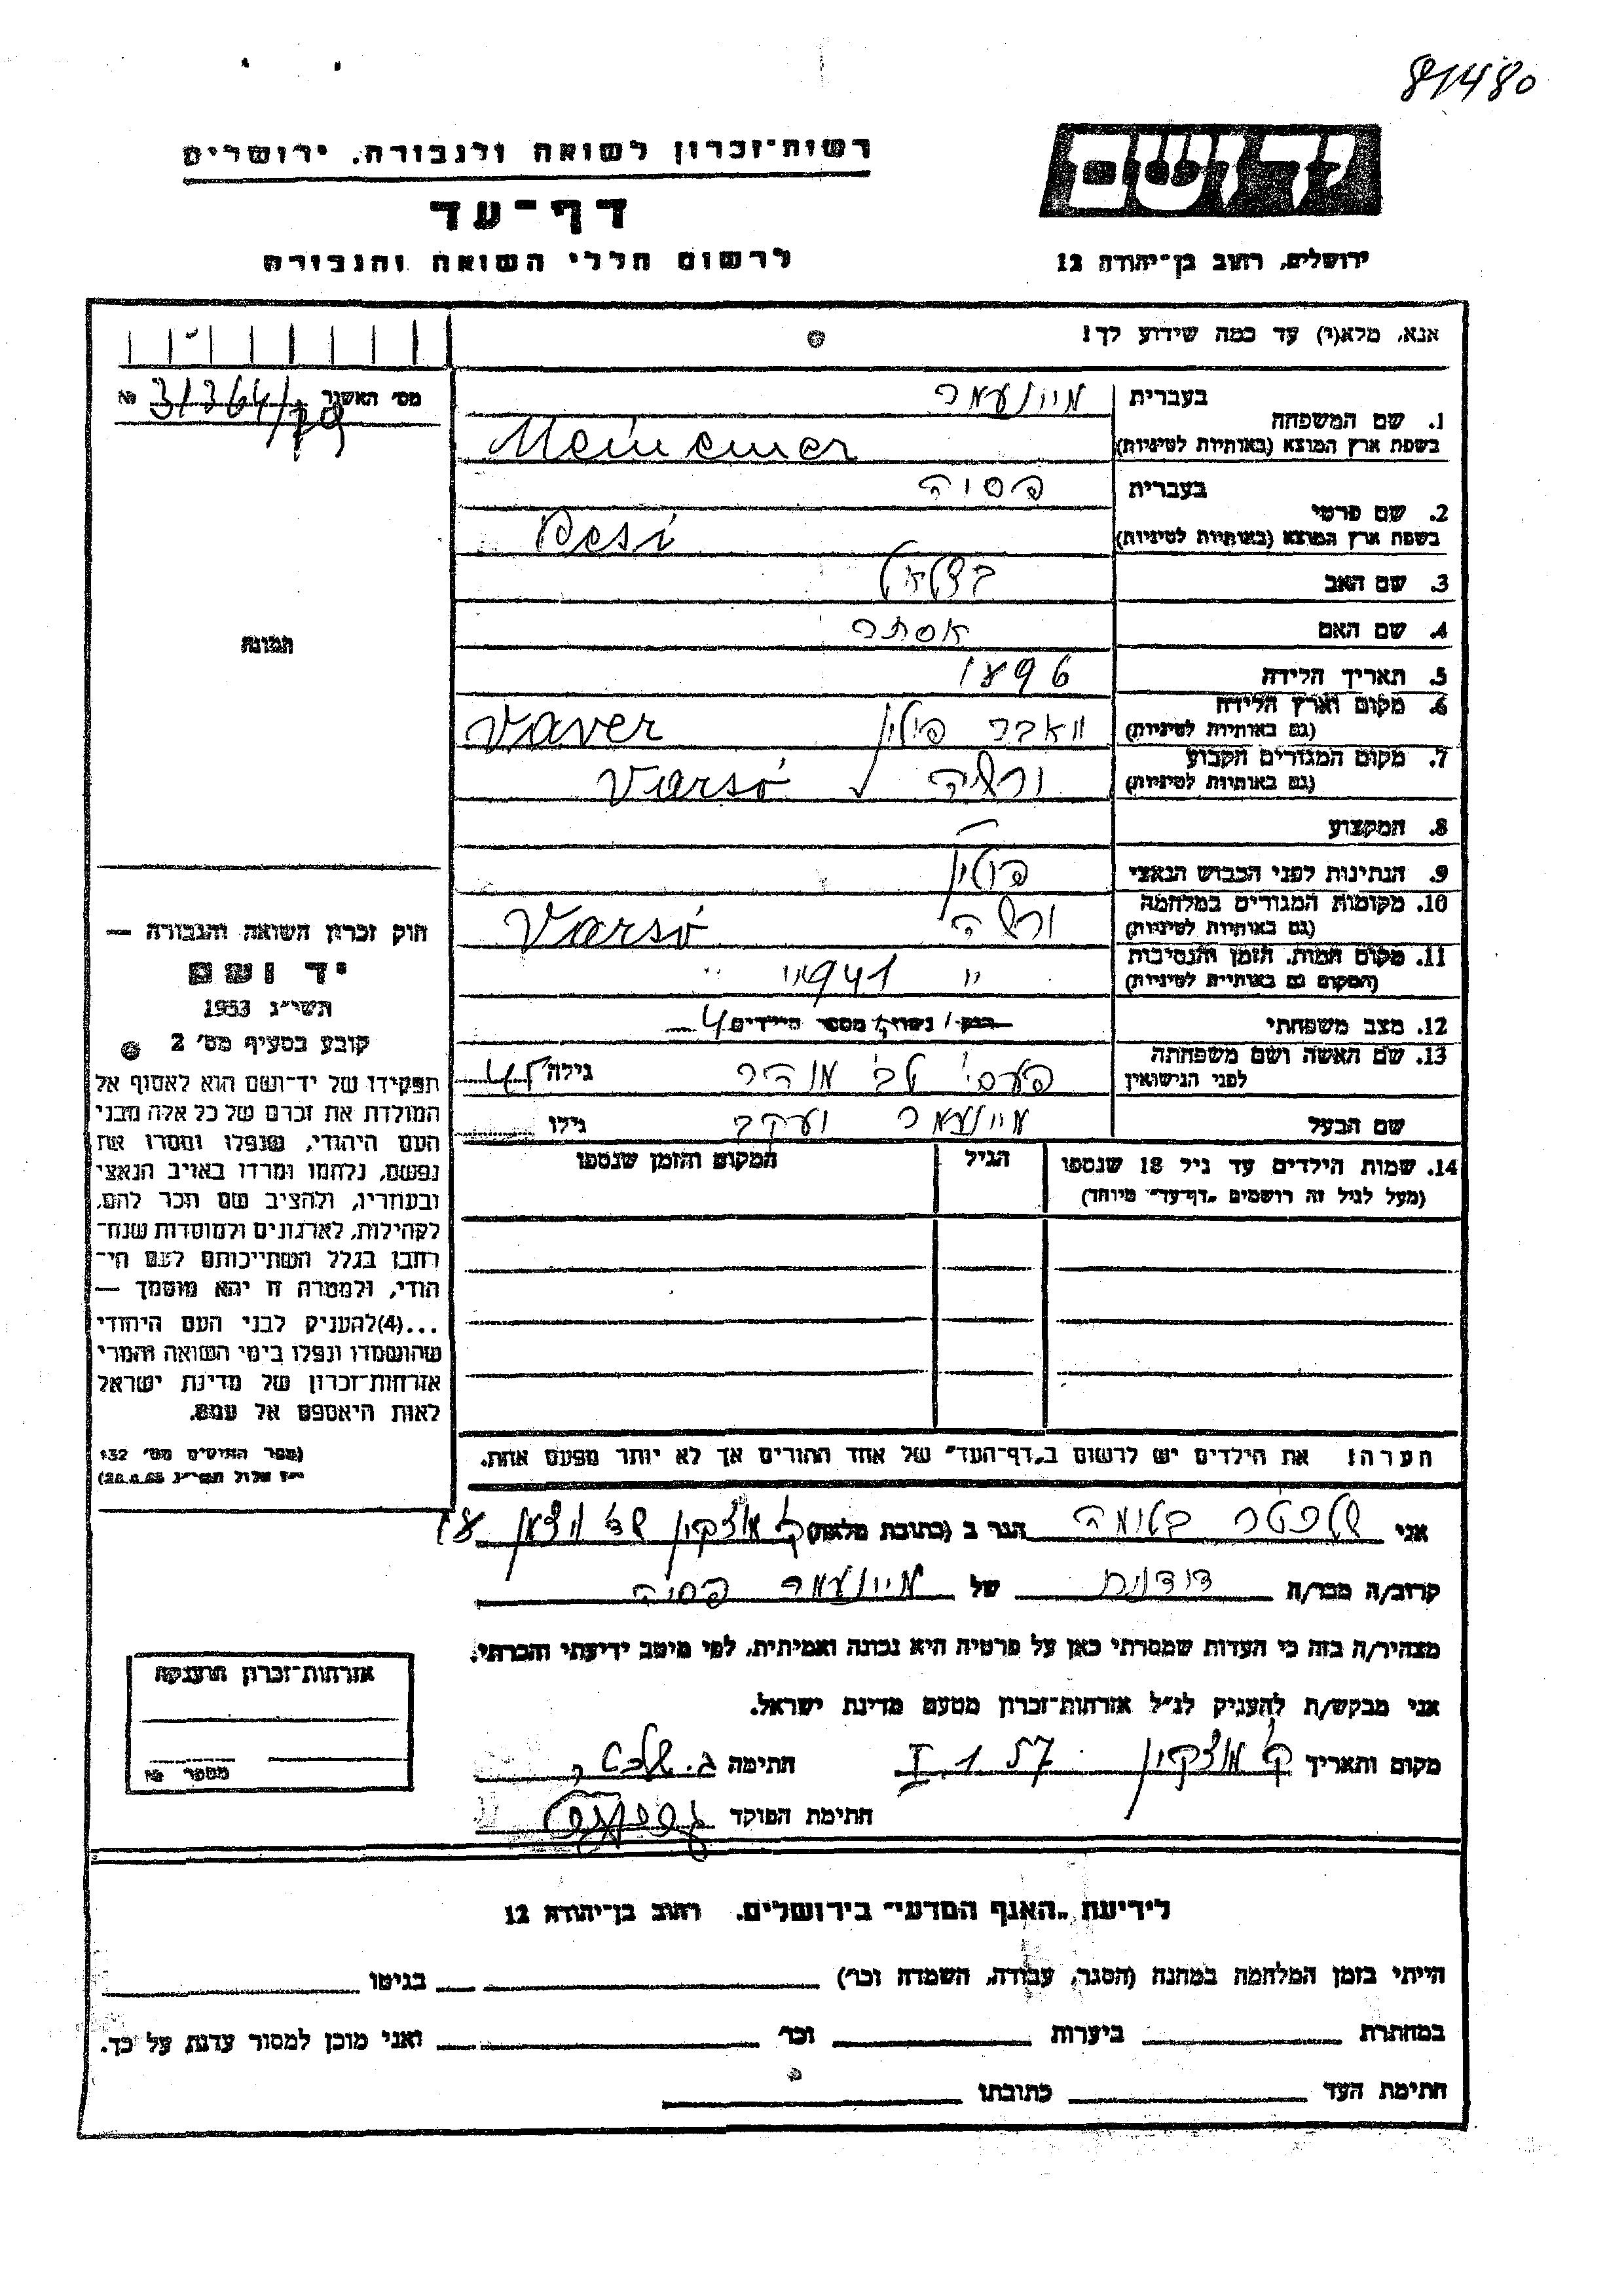 81480
רשות־זכרון לשואה ולגבורה, ירושלים
יד ושם
דף־עד
לרשום חללי השואה והגבורה
ירושלים, רחוב בן־יהודה 12
אנא, מלא(י) עד כמה שידוע לך!
מס׳ האשנר № 31364/79
1. שם המשפחה
בעברית מיינעמר
בשפת ארץ המוצא (באותיות לטיניות) Meinemer
2. שם פרטי
בעברית פסיה
בשפת ארץ המוצא (באותיות לטיניות) Pesi
3. שם האב בצלאל
4. שם האם אסתר
5. תאריך הלידה 1896
6. מקום וארץ הלידה
(גם באותיות לטיניות) וואבר פולין Vaver
7. מקום המגורים הקבוע
(גם באותיות לטיניות) ורשה Varsó
8. המקצוע —
9. הנתינות לפני הכבוש הנאצי פולין
10. מקומות המגורים במלחמה
(גם באותיות לטיניות) ורשה Varsó
11. מקום המות, הזמן והנסיבות
(המקום גם באותיות לטיניות) " 1941 "
12. מצב משפחתי רווק/ נשוי/ מספר הילדים 4
13. שם האשה ושם משפחתה
לפני הנישואין גילה 45
שם הבעל מיינעמר יעקב גילו
14. שמות הילדים עד גיל 18 שנספו
(מעל לגיל זה רושמים „דף־עד״ מיוחד)
הגיל
המקום והזמן שנספו
הערה! את הילדים יש לרשום ב„דף־העד״ של אחד ההורים אך לא יותר מפעם אחת.
תמונה
חוק זכרון השואה והגבורה —
יד ושם
תשי״ג 1953
קובע בסעיף מס׳ 2
תפקידו של יד־ושם הוא לאסוף אל
המולדת את זכרם של כל אלה מבני
העם היהודי, שנפלו ומסרו את
נפשם, נלחמו ומרדו באויב הנאצי
ובעוזריו, ולהציב שם וזכר להם,
לקהילות, לארגונים ולמוסדות שנח־
רבו בגלל השתייכותם לעם הי־
הודי, ולמטרה זו יהא מוסמך —
...(4)להעניק לבני העם היהודי
שהושמדו ונפלו בימי השואה והמרי
אזרחות־זכרון של מדינת ישראל
לאות היאספם אל עמם.
(ספר החוקים מס׳ 132
י״ז אלול תשי״ג 28.8.53)
אני שכטר בלומה הגר ב (כתובת מלאה) ק׳ מוצקין
קרוב/ה מכר/ה דודנית של מיינעמר פסיה
מצהיר/ה בזה כי העדות שמסרתי כאן על פרטיה היא נכונה ואמיתית, לפי מיטב ידיעתי והכרתי.
אני מבקש/ת להעניק לנ״ל אזרחות־זכרון מטעם מדינת ישראל.
מקום ותאריך ק׳ מוצקין 57 1. I חתימה
חתימת הפוקד
אזרחות־זכרון הוענקה
מספר №
לידיעת „האגף המדעי״ בירושלים, רחוב בן־יהודה 12
הייתי בזמן המלחמה במחנה (הסגר, עבודה, השמדה וכו׳) בגיטו
במחתרת ביערות וכו׳ ואני מוכן למסור עדות על כך.
חתימת העד כתובתו